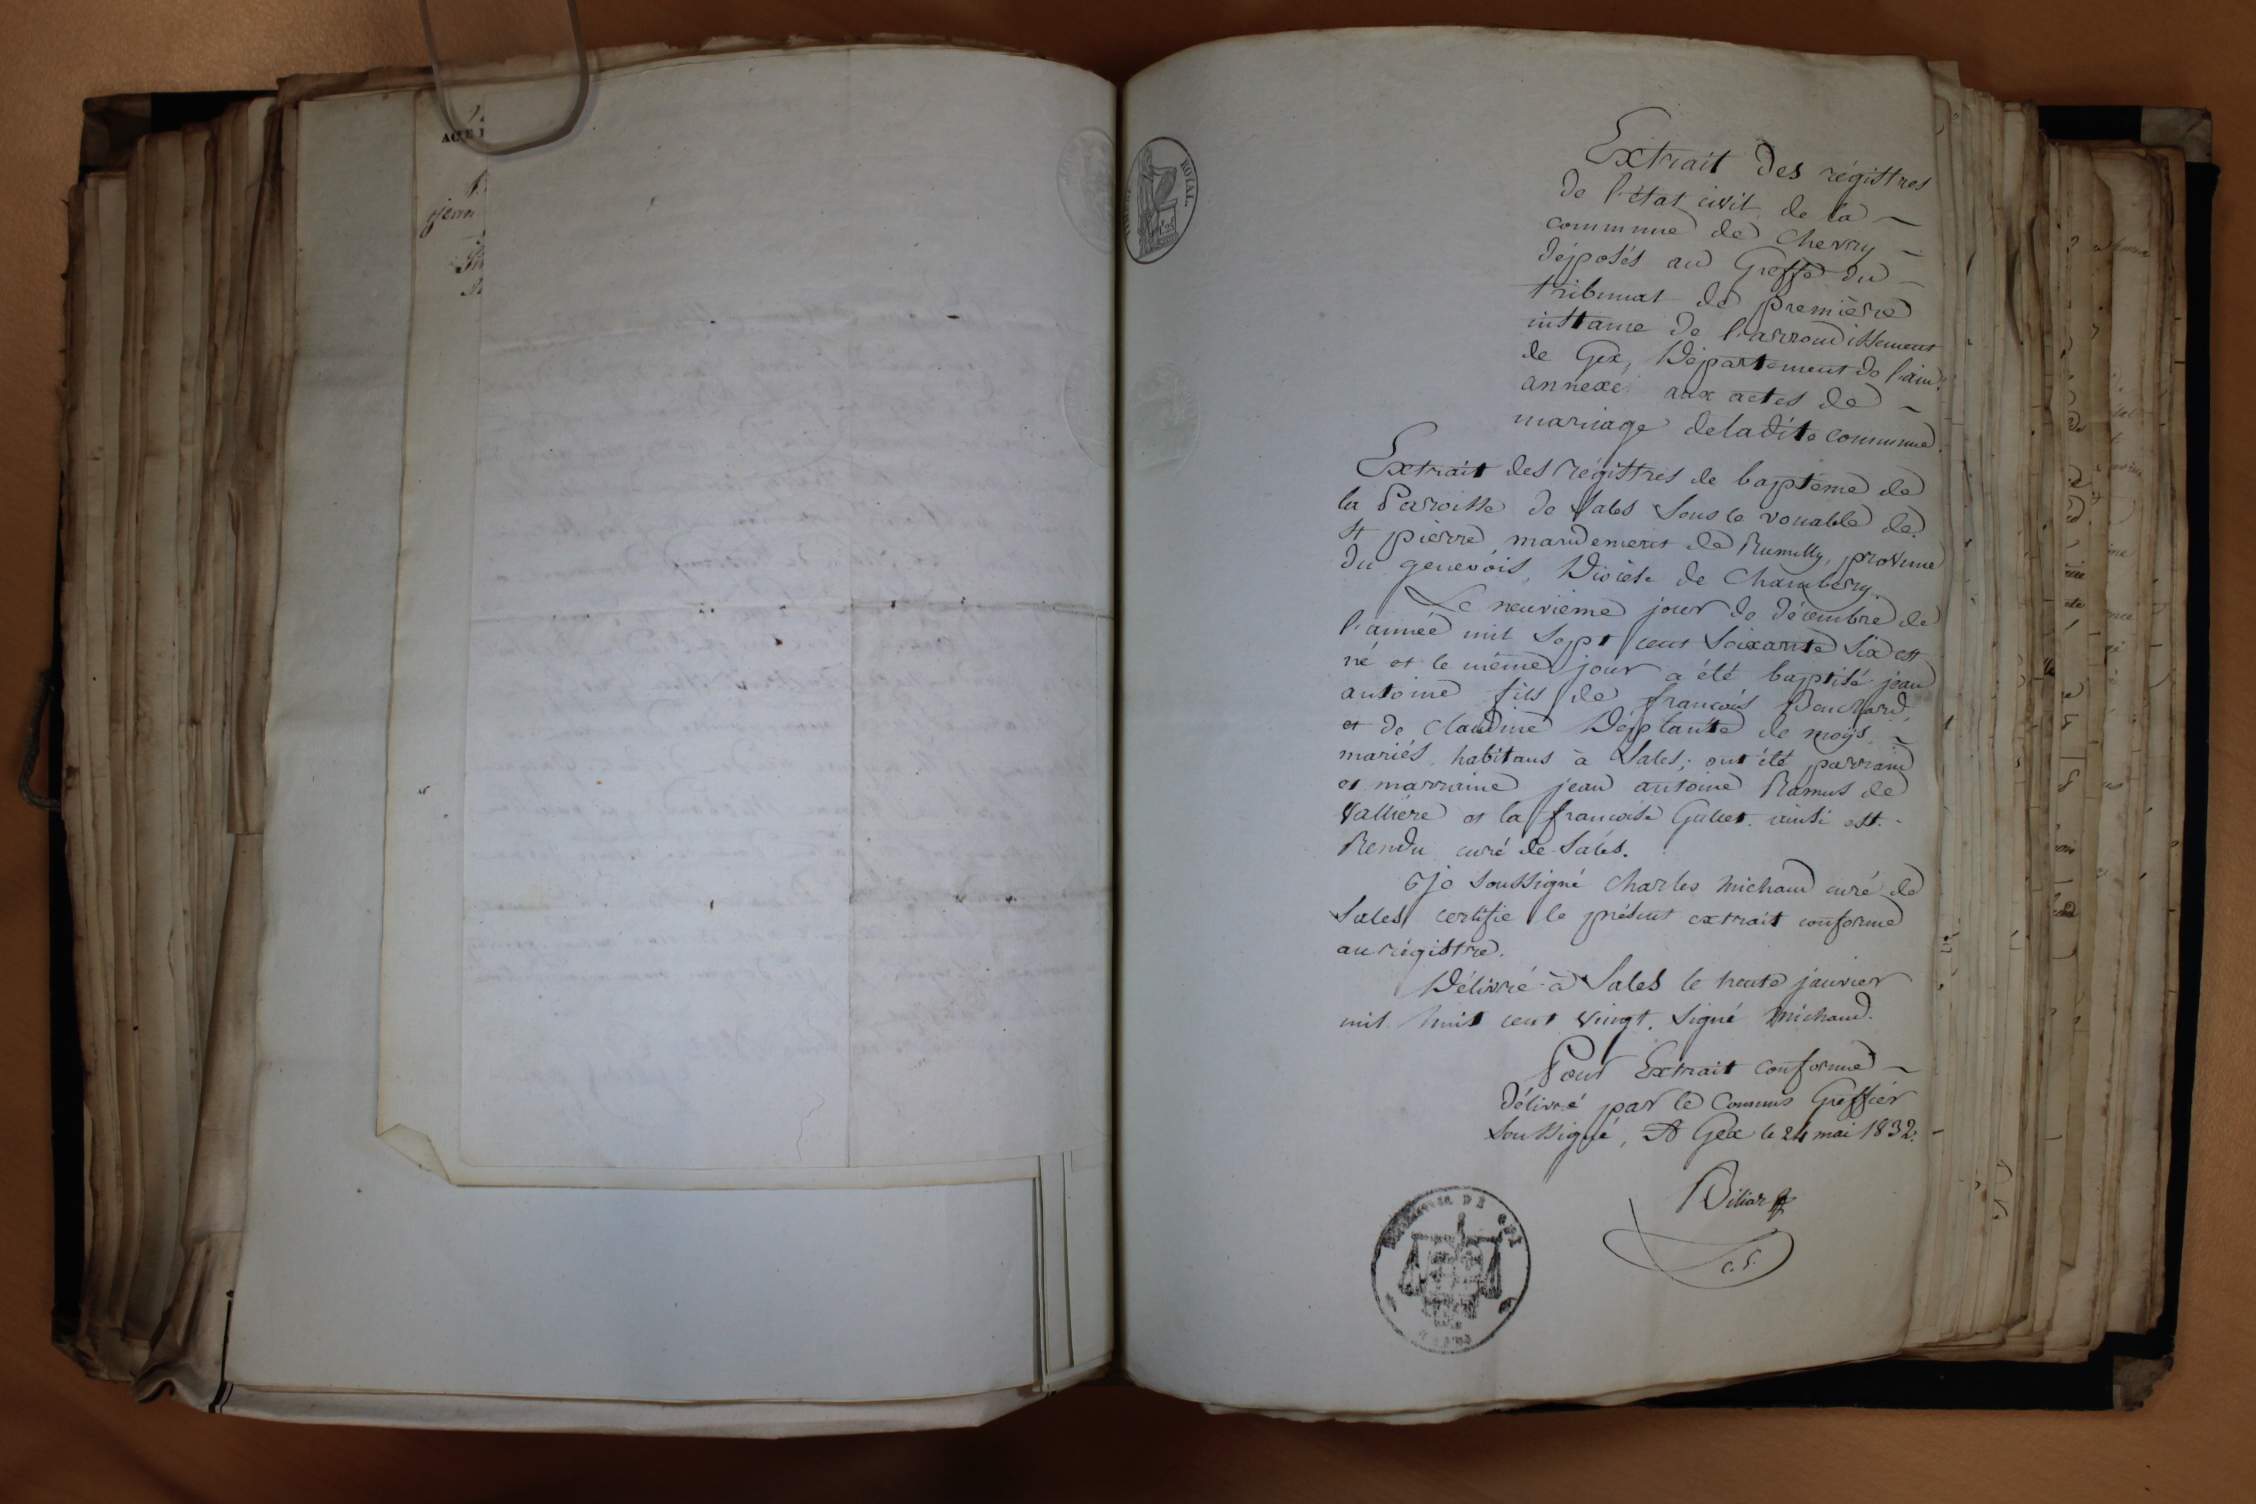 ACTE
jean
ROYAL
Extrait des régistres
de l'état civil de la
commune de Chevry
déposés au Greffe du
tribunal de première
instance de l'arrondissement
de Gex, Département de l'ain
annexé aux actes de
mariage de ladite commune.
Extrait des régistres de baptême de
la Paroisse de Sales sous le vocable de
St pierre, mandement de Rumilly, province
du genevois, Diocèse de Chambery.
Le neuvième jour de décembre de
l'année mil sept cent soixante six est
né et le même jour a été baptisé jean
antoine fils de françois Bouchard,
et de claudine Deplante de moÿs
mariés habitans à Sales; ont été parrain
et marraine jean antoine Ramus de
Vallière et la françoise Gullet. ainsi est.
Rendu curé de Sales.
Je soussigné charles michaud curé de
Sales certifie le présent extrait conforme
au régistre.
Délivré à Sales le trente janvier
mil huit cent vingt. signé Michaud.
Pour Extrait conforme
délivré par le Commis Greffier
soussigné, A Gex le 24 mai 1832.
c. g.
DE GEX